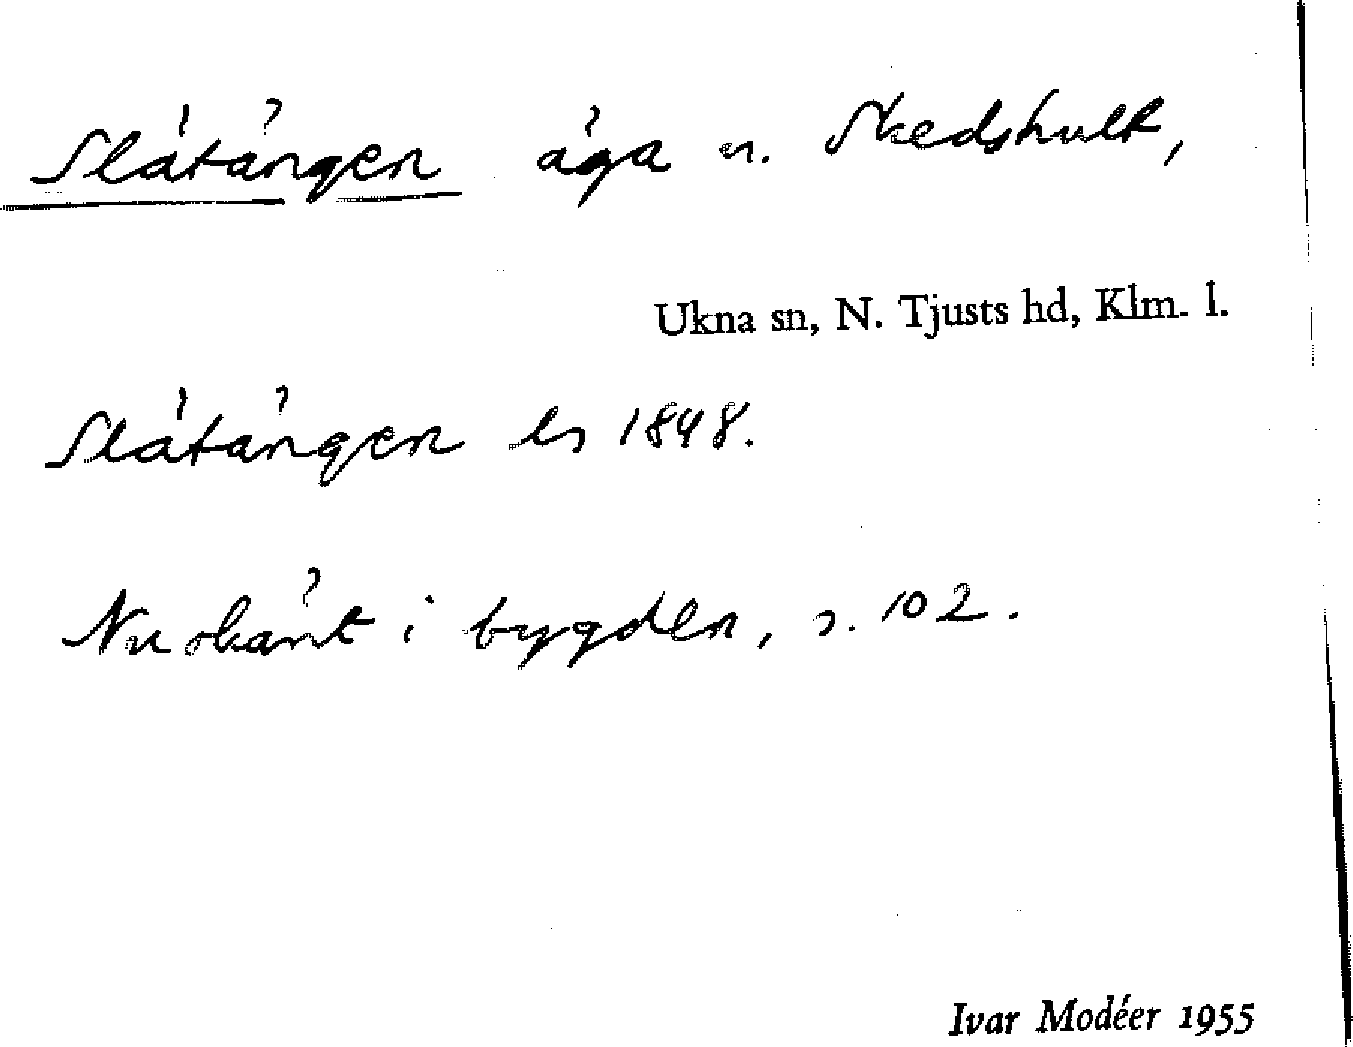 Slåtängen äga u. Skedshult,
Ukna sn, N. Tjusts hd, Klm. l.
Slåtängen ls 1848.
Nu okänt i bygden, s. 102.
Ivar Modéer 1955